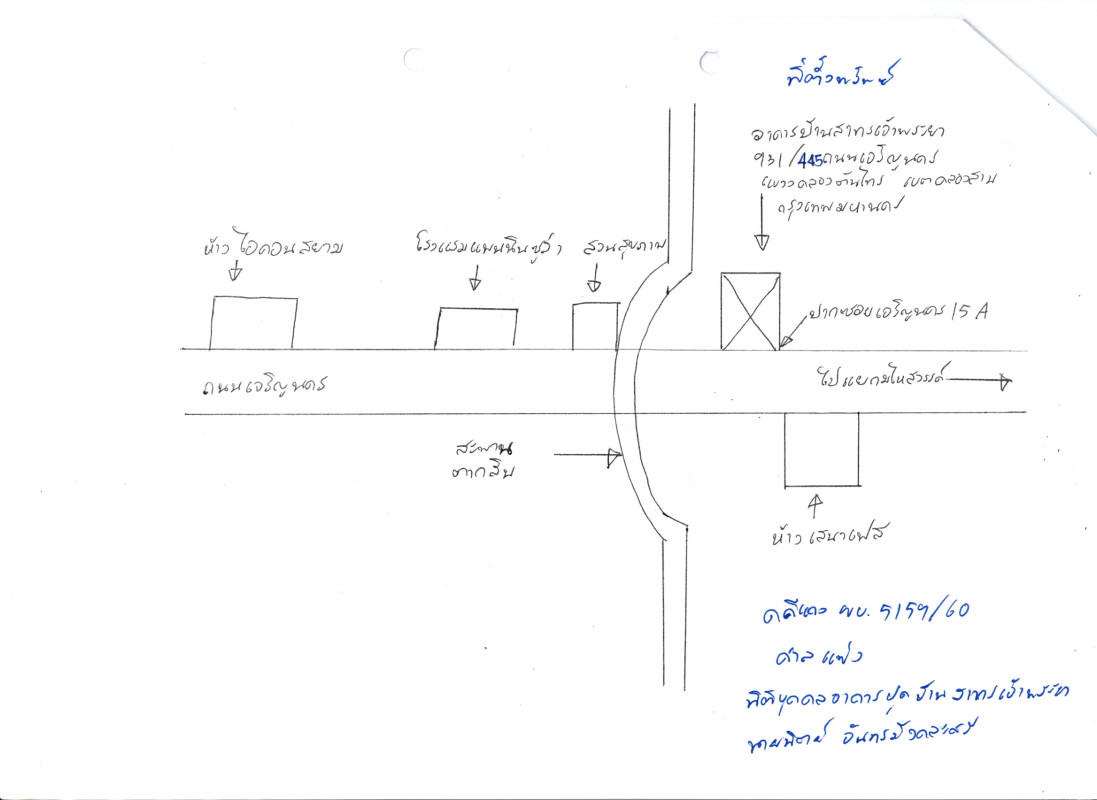 ที่ตั้งทรัพย์
อาคารบ้านสาทรเจ้าพระยา
931/445ถนนเจริญนคร
แขวงคลองต้นไทร เขตคลองสาน
กรุงเทพมหานคร
ห้าง ไอคอนสยาม
โรงแรมเพนนินซูล่า
สวนสุขภาพ
ปากซอยเจริญนคร 15 A
ถนนเจริญนคร
ไปแยกมไหสวรรค์
สะพาน
ตากสิน
ห้าง เสนาเฟส
คดีแดง ผบ. 5159/60
ศาล แพ่ง
นิติบุคคลอาคารชุด บ้านสาทรเจ้าพระยา